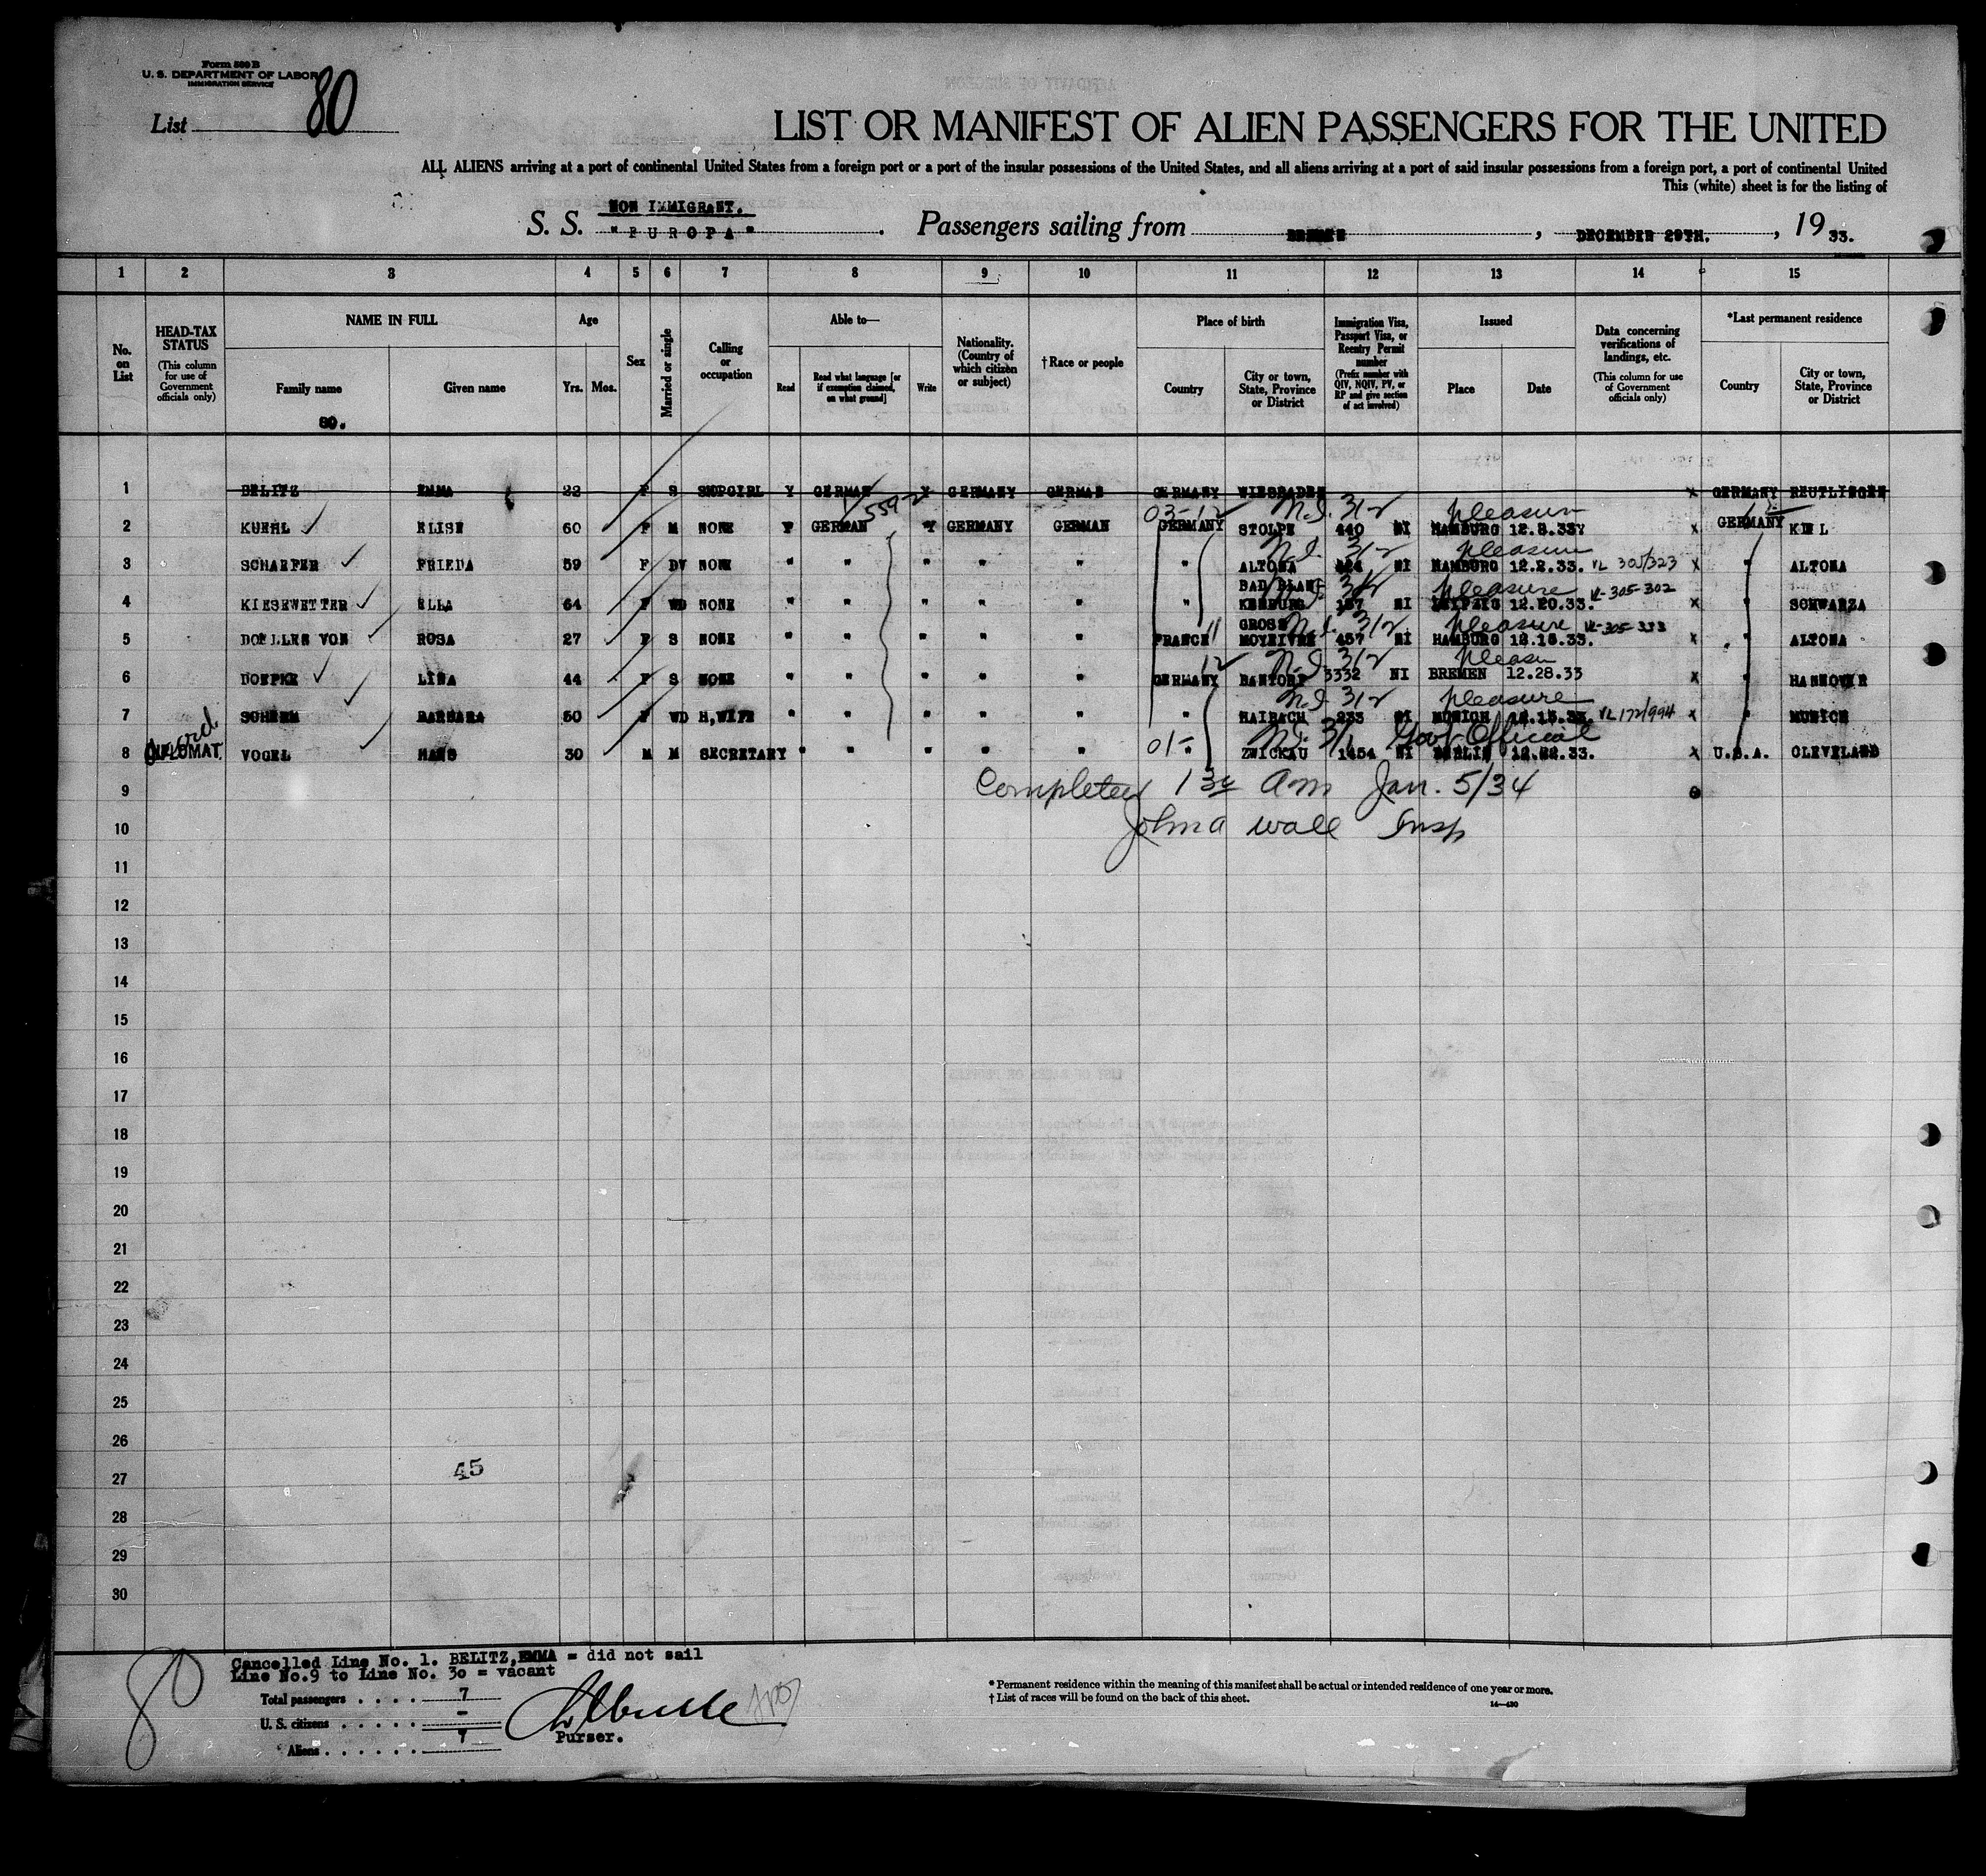 Form 500 B
U. S. DEPARTMENT OF LABOR
IMMIGRATION SERVICE
List 80
LIST OR MANIFEST OF ALIEN PASSENGERS FOR THE UNITED
ALL ALIENS arriving at a port of continental United States from a foreign port or a port of the insular possessions of the United States, and all aliens arriving at a port of said insular possessions from a foreign port, a port of continental United
This (white) sheet is for the listing of
NON IMMIGRANT.
S. S. "EUROPA". Passengers sailing from BREMEN, DECEMBER 29TH., 19 33.
1 2 3 4 5 6 7 8 9 10 11 12 13 14 15
No. on List
HEAD-TAX STATUS (This column for use of Government officials only)
NAME IN FULL
Family name
Given name
80.
Age
Yrs. Mos.
Sex
Married or single
Calling or occupation
Able to—
Read
Read what language [or if exemption claimed, on what ground]
Write
Nationality. (Country of which citizen or subject)
† Race or people
Place of birth
Country
City or town, State, Province or District
Immigration Visa, Passport Visa, or Reentry Permit number (Prefix number with QIV, NQIV, PV, or RP and give section of act involved)
Issued
Place
Date
Data concerning verifications of landings, etc. (This column for use of Government officials only)
*Last permanent residence
Country
City or town, State, Province or District
1 BELITZ EMMA 22 F S SHOPGIRL Y GERMAN Y GERMANY GERMAN GERMANY WIESBADEN x GERMANY REUTLINGEN
03-12 N.I. 312 pleasure
2 KUEHL ELISE 60 F M NONE Y GERMAN Y GERMANY GERMAN GERMANY STOLPE 440 NI HAMBURG 12.8.33 x GERMANY KIEL
N.I. 312 pleasure
3 SCHAEFER FRIEDA 59 F DV NONE " " " " " " ALTONA NI HAMBURG 12.2.33. VL 305/323 x " ALTONA
BAD BLANK 312 pleasure
4 KIESEWETTER ELLA 64 F WD NONE " " " " " " KENBURG 157 NI LEIPZIG 12.20.33. VL-305-302 x " SCHWARZA
GROSS N.I. 312 pleasure
5 DOELLEN VON ROSA 27 F S NONE " " " " " FRANCE 11 MOYEUVRE 457 NI HAMBURG 12.15.33. VL-305-323 x " ALTONA
12 N.I. 312 pleasure
6 DOEPKE LINA 44 F S NONE " " " " " GERMANY BANTORF 3332 NI BREMEN 12.28.33 x " HANNOVER
N.I. 312 pleasure
7 BARBARA 50 F WD H,WIFE " " " " " " HAIBACH 233 NI MUNICH 12.15.33. VL 172/994 x " MUNICH
N.I. 3/1 Govt Official
8 DIPLOMAT. VOGEL HANS 30 M M SECRETARY " " " " " 01- " ZWICKAU 1454 NI BERLIN 12.22.33. x U.S.A. CLEVELAND
9 Completed 1 30 Am Jan. 5/34
10 John A Wall Insp
11
12
13
14
15
16
17
18
19
20
21
22
23
24
25
26
27 45
28
29
30
80
Cancelled Line No. 1. BELITZ,EMMA = did not sail
Line No.9 to Line No. 30 = vacant
Total passengers . . . . 7
U. S. citizens . . . . . –
Aliens . . . . . . 7
Purser.
* Permanent residence within the meaning of this manifest shall be actual or intended residence of one year or more.
† List of races will be found on the back of this sheet.
14—430